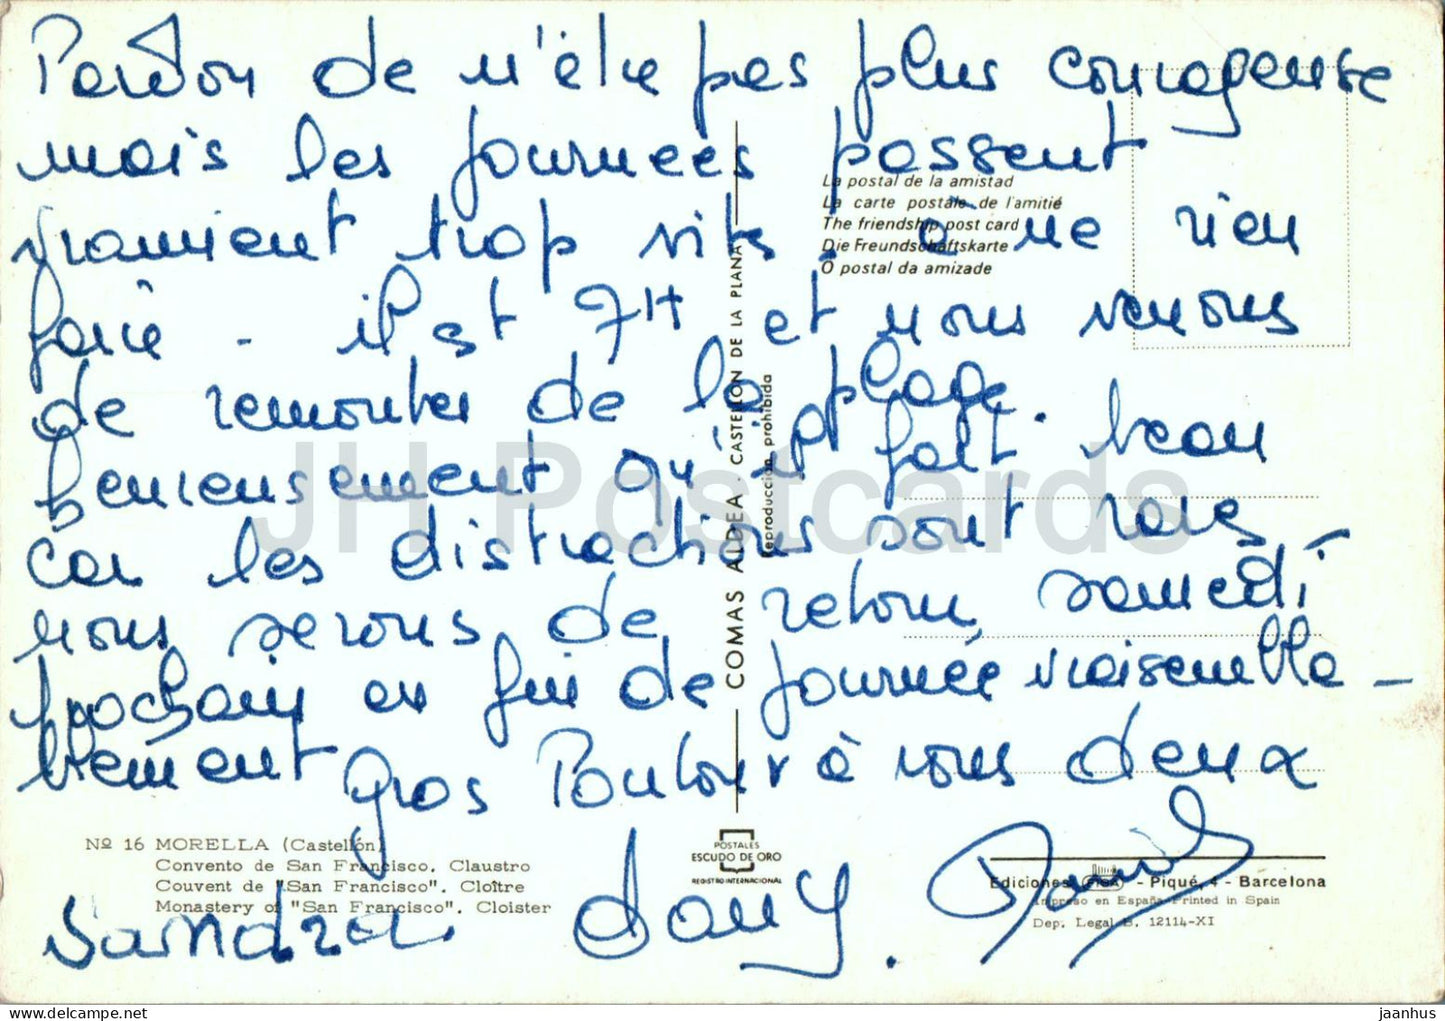 Pardon de n'être pas plus courageuse
mais les journées passent
vraiment trop vite, à ne rien
faire - il est 7H et nous venons
de remonter de la plage.
heureusement qu'il fait beau
car les distractions sont rares
nous serons de retour, samedi
prochain en fin de journée vraisembla-
blement
gros Poutous à vous deux
Sandra Dany.
La postal de la amistad
La carte postale de l'amitié
The friendship post card
Die Freundschaftskarte
O postal da amizade
COMAS ALDEA . CASTELLON DE LA PLANA
Reproducción prohibida
Nº 16 MORELLA (Castellón)
Convento de San Francisco. Claustro
Couvent de "San Francisco". Cloître
Monastery of "San Francisco". Cloister
POSTALES
ESCUDO DE ORO
REGISTRO INTERNACIONAL
Ediciones FISA - Piqué, 4 - Barcelona
Impreso en España Printed in Spain
Dep. Legal B. 12114-XI
JH Postcards
jaanhus
delcampe.net